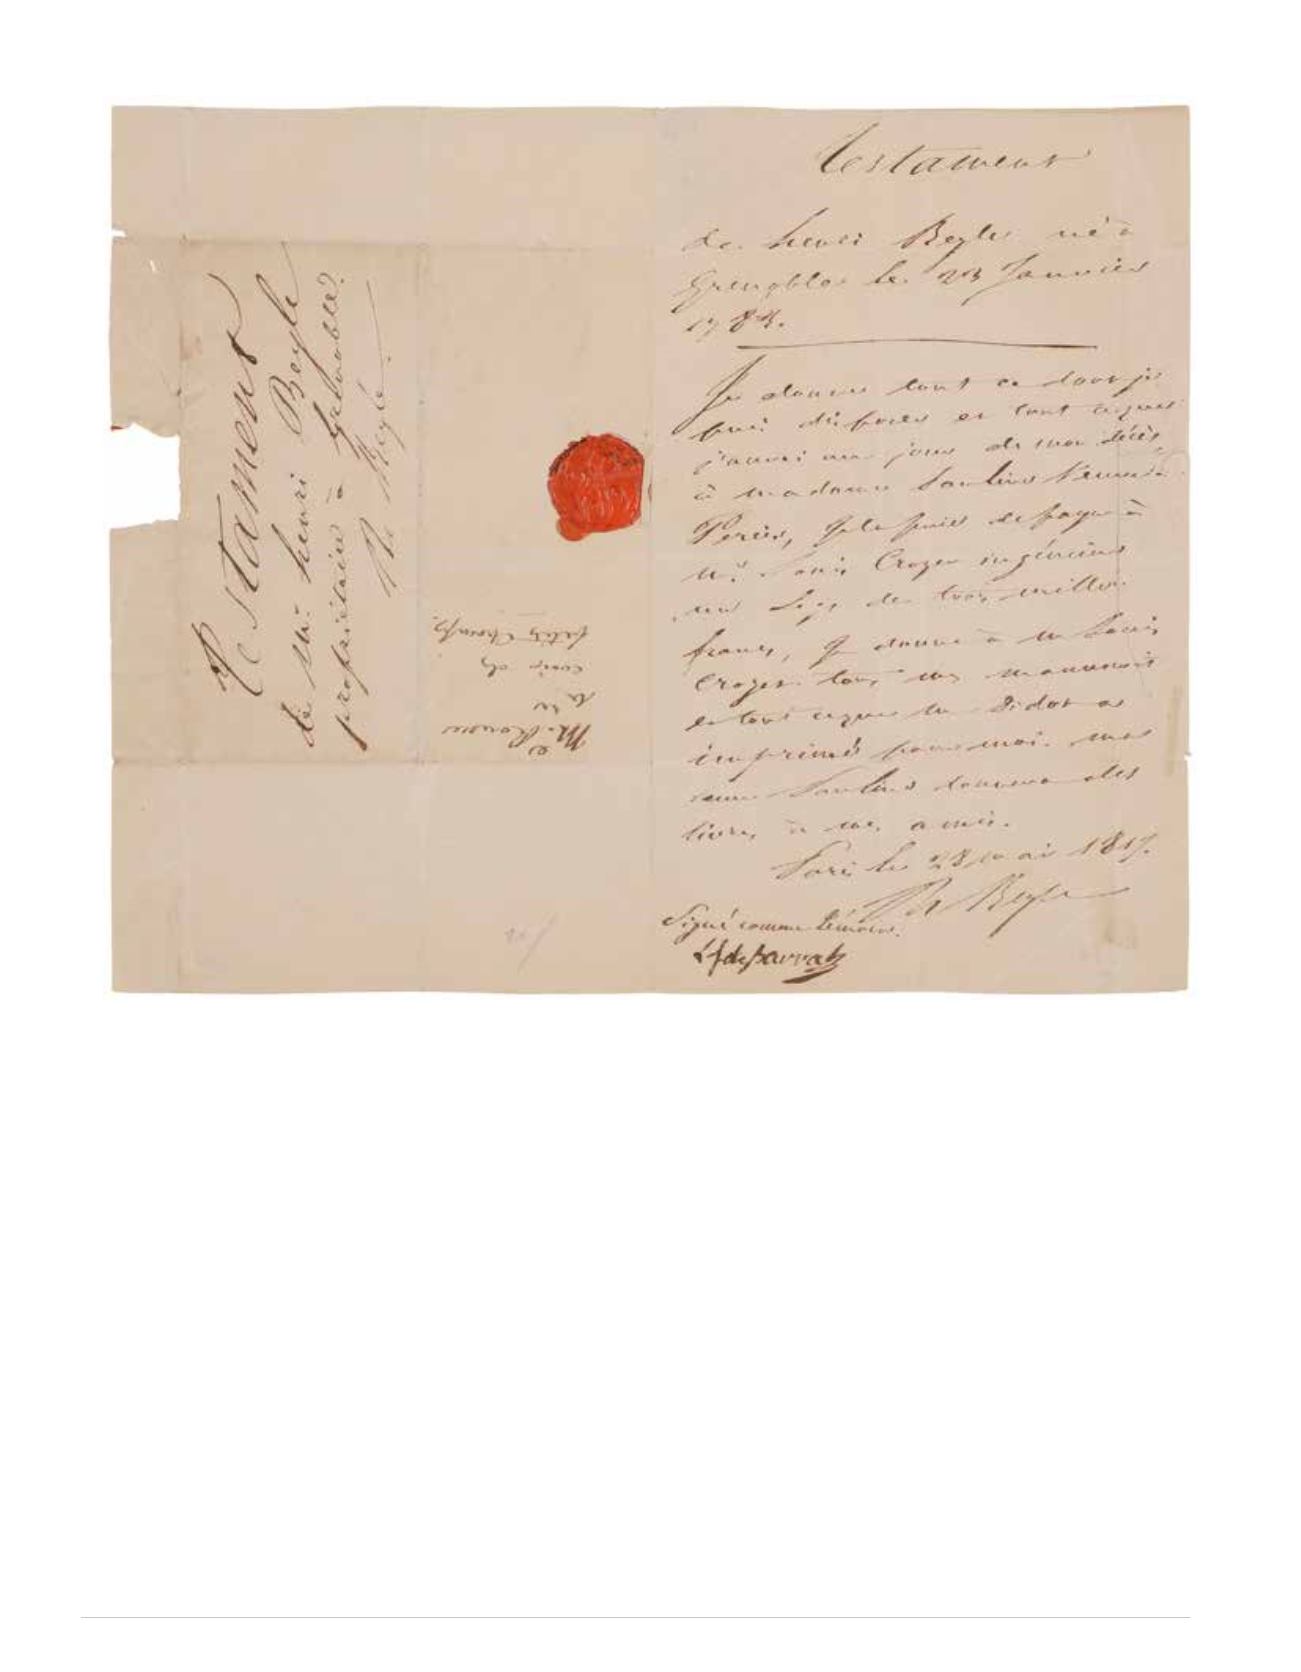 Testament
de Mr. henri Beyle
propriétaire à Grenoble.
H Beyle.
petits champs
Testament
de henri Beyle né à
Grenoble le 23 Janvier
1783.
Je donne tout ce dont je
puis disposer et tout ceque
j'aurai au jour de mon décès
à madame Pauline
Perier, Je la prie de payer à
Mr. Louis Crozet ingénieur
un Legs de trois mille
francs, Je donne à M Louis
Crozet tous mes manuscrits
et tout ceque M Didot a
imprimé pour moi. ma
sœur Pauline donnera des
livres à mes amis.
Paris le 28 mai 1817.
H Beyle
Signé comme témoin.